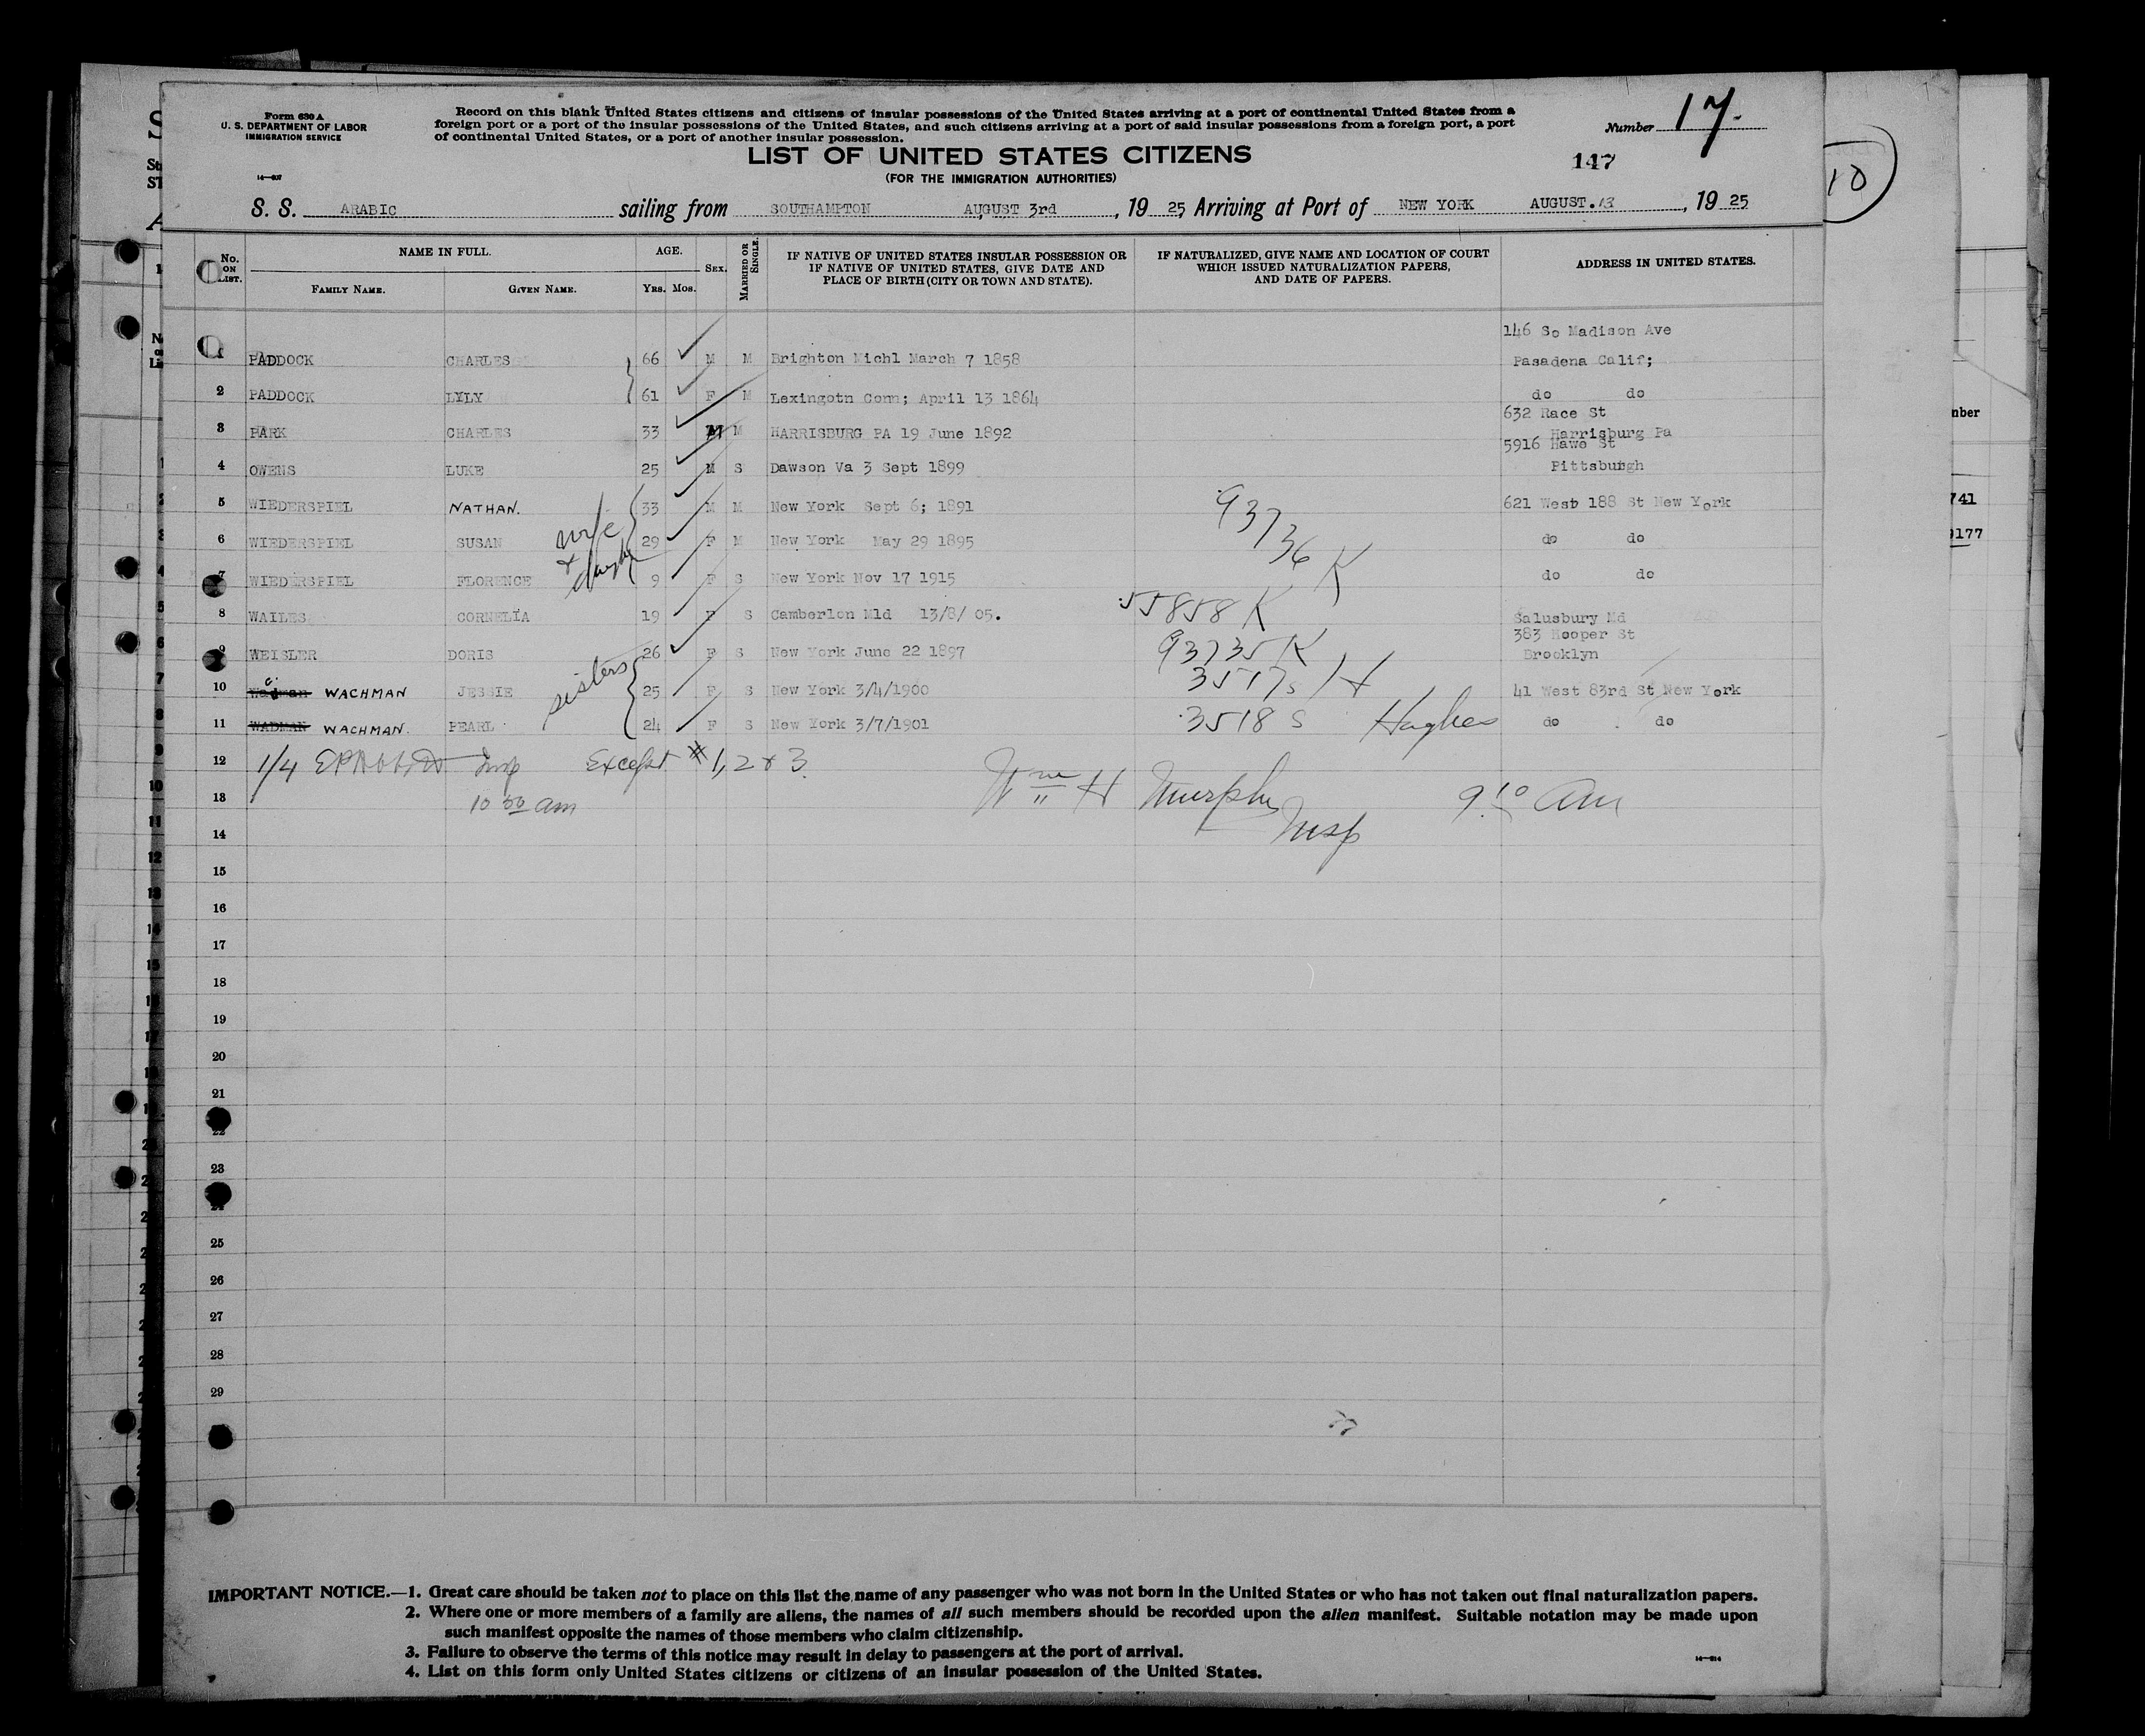 Form 630 A
U. S. DEPARTMENT OF LABOR
IMMIGRATION SERVICE
Record on this blank United States citizens and citizens of insular possessions of the United States arriving at a port of continental United States from a
foreign port or a port of the insular possessions of the United States, and such citizens arriving at a port of said insular possessions from a foreign port, a port
of continental United States, or a port of another insular possession.
Number 17.
LIST OF UNITED STATES CITIZENS
147
(FOR THE IMMIGRATION AUTHORITIES)
10
S. S. ARABIC sailing from SOUTHAMPTON AUGUST 3rd, 19 25 Arriving at Port of NEW YORK AUGUST.13, 19 25
No. ON LIST. NAME IN FULL. AGE. SEX. MARRIED OR SINGLE. IF NATIVE OF UNITED STATES INSULAR POSSESSION OR IF NATIVE OF UNITED STATES, GIVE DATE AND PLACE OF BIRTH (CITY OR TOWN AND STATE). IF NATURALIZED, GIVE NAME AND LOCATION OF COURT WHICH ISSUED NATURALIZATION PAPERS, AND DATE OF PAPERS. ADDRESS IN UNITED STATES.
FAMILY NAME. GIVEN NAME. YRS. MOS.
146 So Madison Ave
PADDOCK CHARLES 66 M M Brighton Michl March 7 1858 Pasadena Calif;
2 PADDOCK LYLY 61 F M Lexingotn Conn; April 13 1864 do do
632 Race St
3 PARK CHARLES 33 M M HARRISBURG PA 19 June 1892 Harrisburg Pa
5916 Hawe St
4 OWENS LUKE 25 M S Dawson Va 3 Sept 1899 Pittsburgh
5 WIEDERSPIEL NATHAN. 33 M M New York Sept 6; 1891 93736 K 621 West 188 St New York
6 WIEDERSPIEL SUSAN wife 29 F M New York May 29 1895 do do
7 WIEDERSPIEL FLORENCE & daugh 9 F S New York Nov 17 1915 do do
8 WAILES CORNELÏA 19 F S Camberlon Mld 13/8/ 05. 55858 K Salusbury Md
383 Hooper St
9 WEISLER DORIS 26 F S New York June 22 1897 93735 K Brooklyn
10 Wadman WACHMAN JESSIE sisters 25 F S New York 3/4/1900 3517 s H 41 West 83rd St New York
11 WADMAN WACHMAN. PEARL 24 F S New York 3/7/1901 3518 S Hughes do do
12 1/4 Insp Except #1, 2 & 3
13 10 50 am Wm H Murphy Insp 9 10 am
14
15
16
17
18
19
20
21
22
23
25
26
27
28
29
IMPORTANT NOTICE.—1. Great care should be taken not to place on this list the name of any passenger who was not born in the United States or who has not taken out final naturalization papers.
2. Where one or more members of a family are aliens, the names of all such members should be recorded upon the alien manifest. Suitable notation may be made upon
such manifest opposite the names of those members who claim citizenship.
3. Failure to observe the terms of this notice may result in delay to passengers at the port of arrival.
4. List on this form only United States citizens or citizens of an insular possession of the United States.